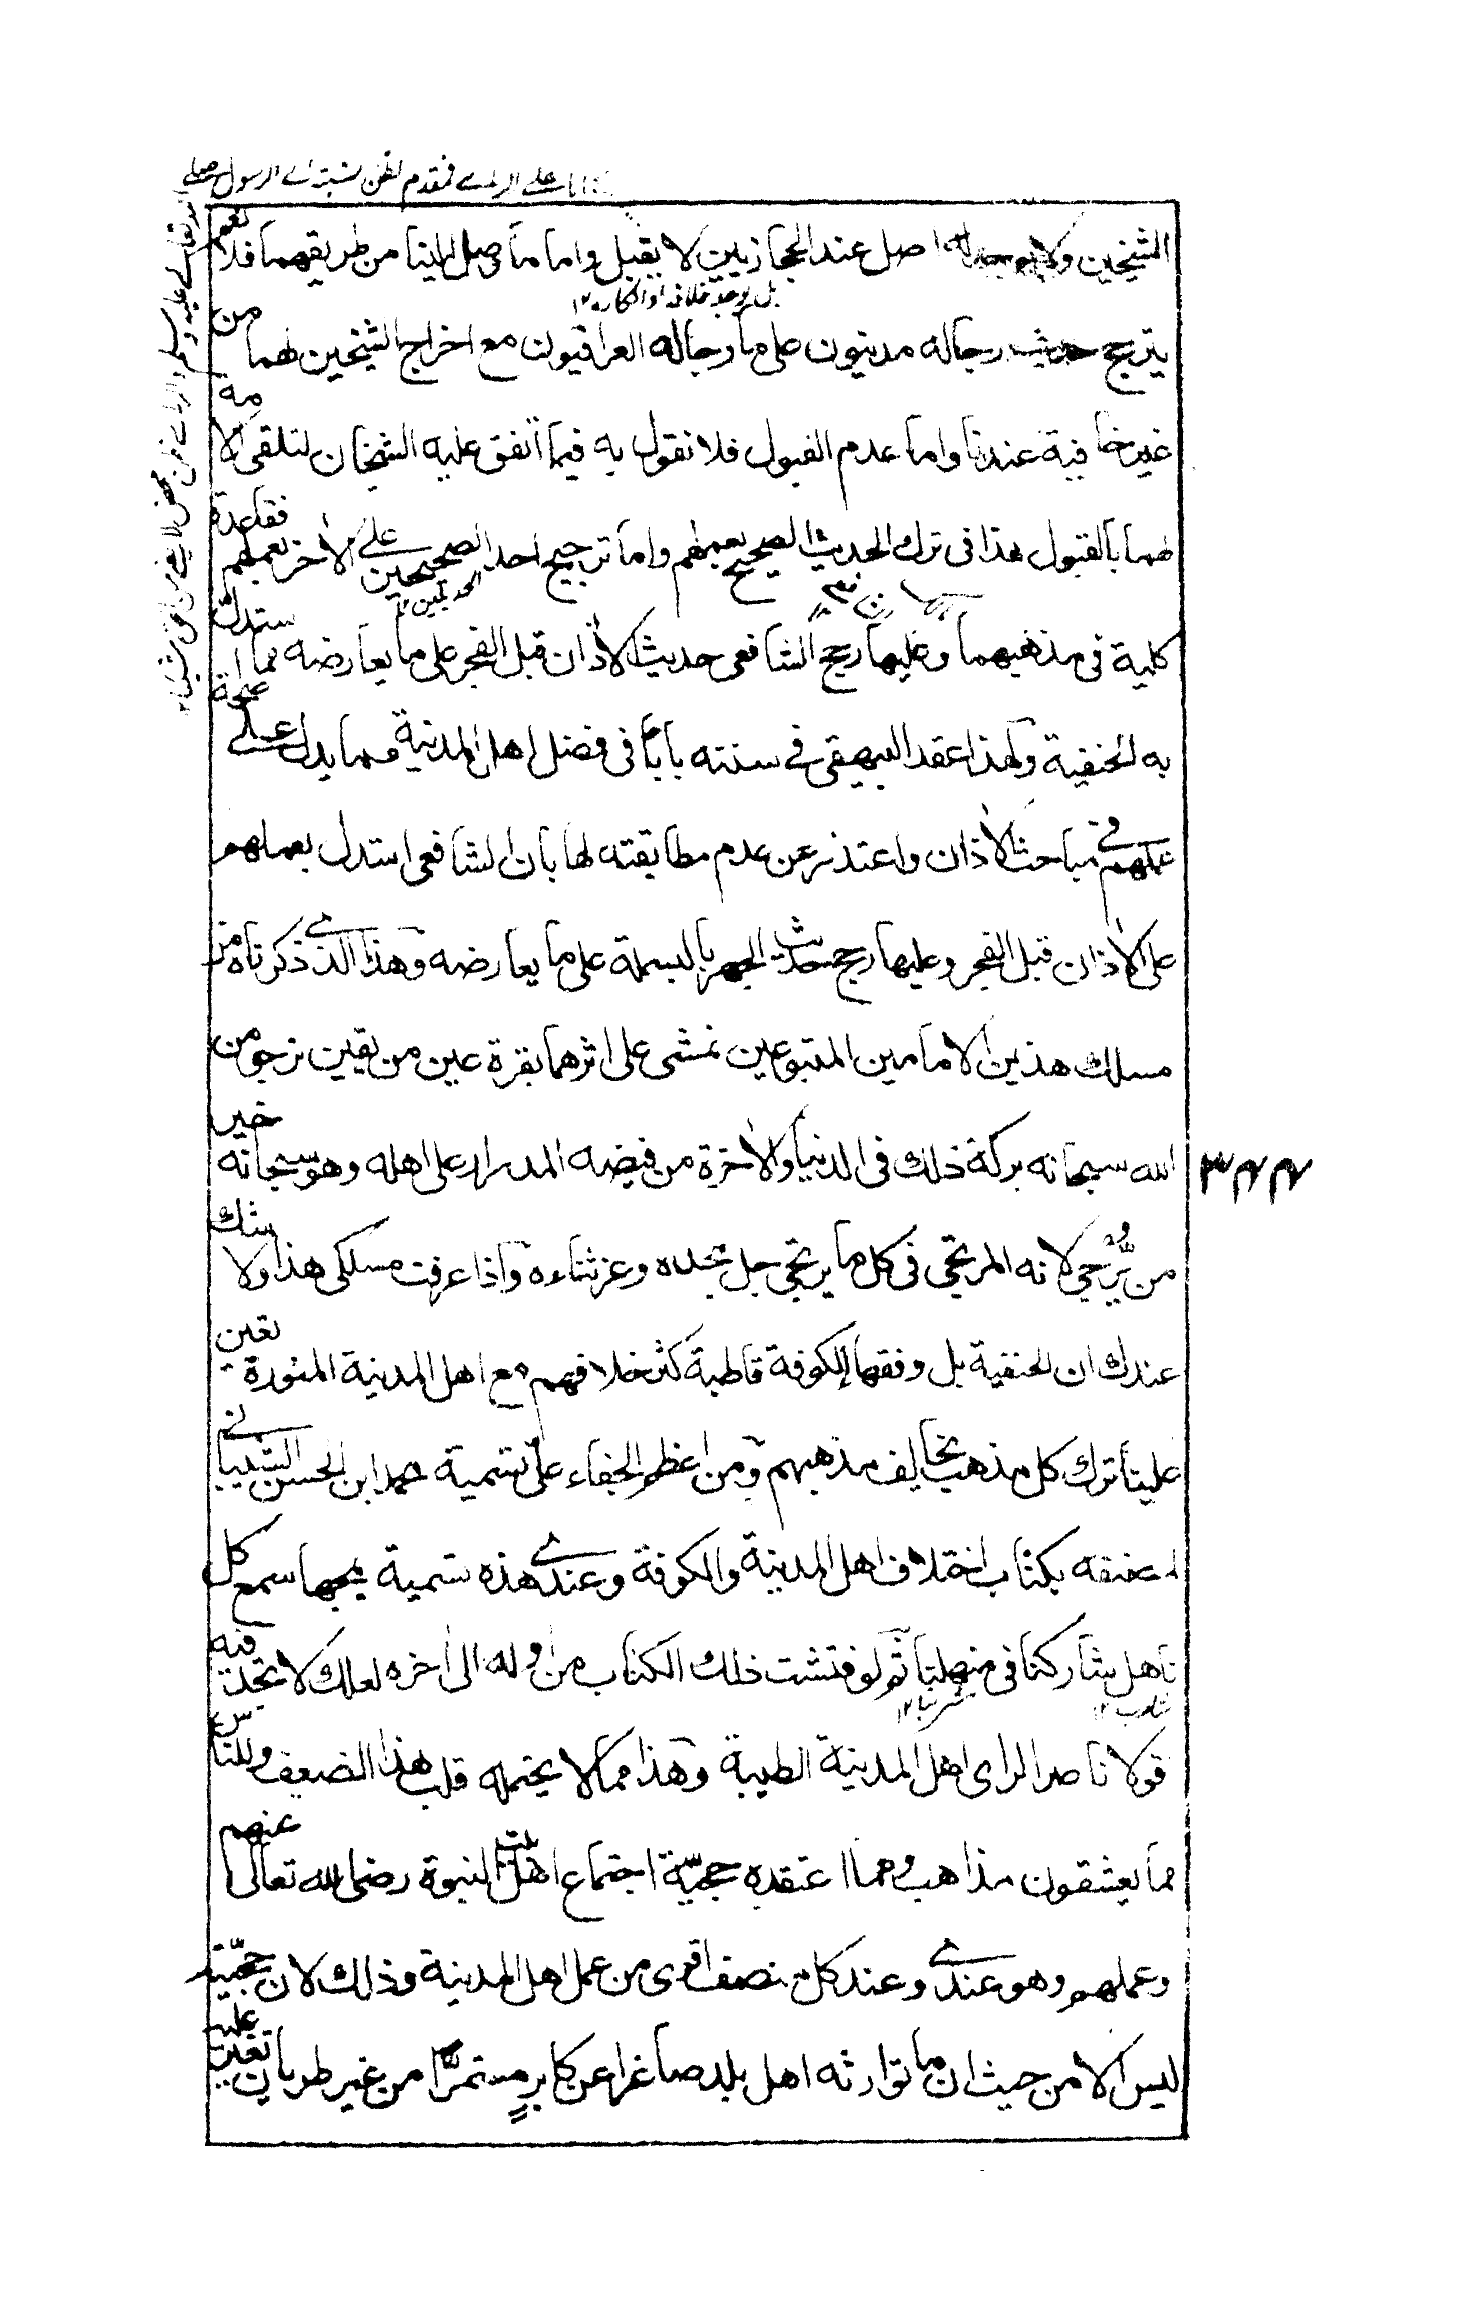 على الراى فمقدم لظن نسبته الى الرسول صلى
الله تعالى عليه وسلم والراى ظن محض لا يغنى من الحق شيئا ١٢
الشيخين ولا يوجد له اصل عند الحجازيين لا يقبل واما ما وصل الينا من طريقهما فلا نعم
بل يوجد خلافه او انكاره ١٢
يترجح حديث رجاله مدنيون على ما رجاله العراقيون مع اخراج الشيخين لهما من
غير خافية عندنا واما عدم القبول فلا نقول به فيما اتفق عليه الشيخان لتلقى الامة
لهما بالقبول هذا فى ترك الحديث الصحيح بعملهم واما ترجيح احد الصحيحين على الاخر بعملهم فقاعدة
الحديثين ١٢
كلية فى مذهبهما وعليها رجح الشافعى حديث الاذان قبل الفجر على ما يعارضه مما استدل
به الحنفية ولهذا عقد البيهقى فى سننه بابا فى فضل اهل المدينة ومما يدل على صحة
عملهم فى مباحث الاذان واعتذر عن عدم مطابقته لها بان الشافعى استدل بعملهم
على الاذان قبل الفجر وعليها رجح حديث الجهر بالبسملة على ما يعارضه وهذا الذى ذكرناه من
مسلك هذين الامامين المتبوعين نمشى على اثرهما بقرة عين من يقين نرجو من
الله سبحانه بركة ذلك فى الدنيا والاخرة من فيضه المدرار على اهله وهو سبحانه خير
٣٤٤
من يُّرجى لانه المرتجى فى كل ما يرتجى جل مجده وعز ثناءه واذا عرفت مسلكى هذا ولا شك
عندك ان الحنفية بل وفقهاء الكوفة قاطبة كثر خلافهم مع اهل المدينة المنورة تعين
علينا ترك كل مذهب يخالف مذهبهم ومن اعظم الجفاء علىّ تسمية محمد ابن الحسن الشيبانى
لمصنفه بكتاب اختلاف اهل المدينة والكوفة وعندى هذه تسمية يمجها سمع كل
ناهل شاركنا فى منهلنا ثم لو فتشت ذلك الكتاب من اوله الى اخره لعلك لا تجد فيه
شارب ١٢ مشربنا ١٢
قولا ناصر الراى اهل المدينة الطيبة وهذا مما لا يحتمله قلب هذا الضعيف وللناس
مما يعشقون مذاهب ومما اعتقده حجيّة اجتماع اهل بيت النبوة رضى الله تعالى عنهم
وعملهم وهو عندى وعند كل منصف اقوى من عمل اهل المدينة وذلك لان حجيّته
ليس الا من حيث ان ما توارثه اهل بلد صاغرا عن كابرٍ مستمرًّا من غير طريان تغير عليه